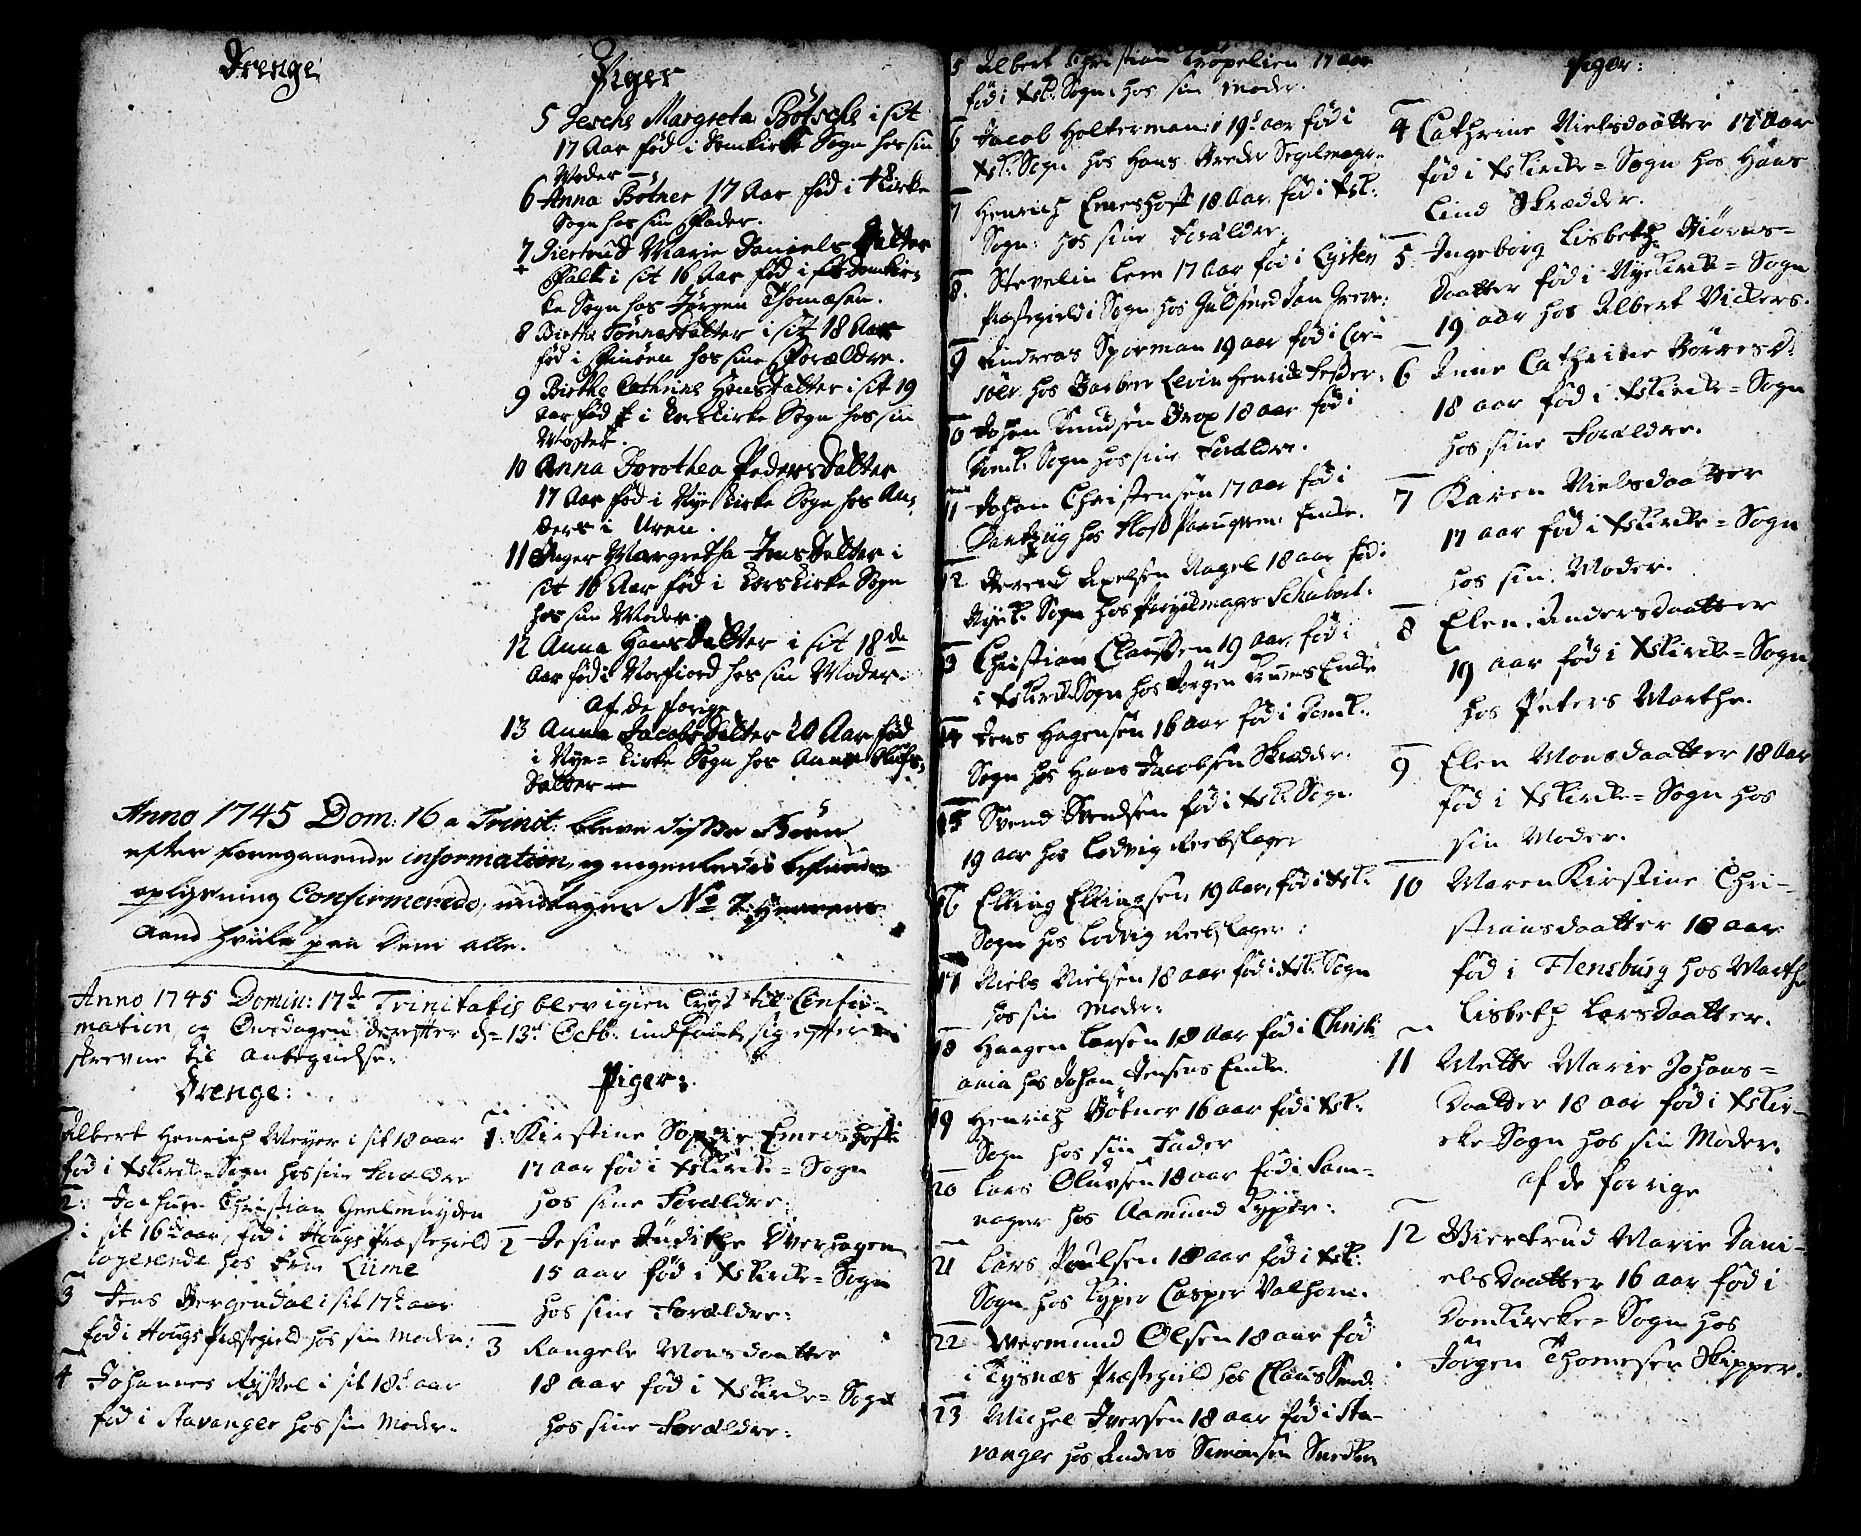 Drenge
Piger
5 Jesche Margreta Bötsche i sit
17 Aar fød i Domkirke Sogn hos sin
Moder
6 Anna Bötner 17 Aar fød i +Kirke
Sogn hos sin Fader.
7 Giertrud Marie Daniels Datter
Falk i sit 16 Aar fød i Domkir-
ke Sogn hos Jörgen Thomæsen.
8 Birthe Tönnes Datter i sit 18 Aar
fød i hos sine Forældre.
9 Birthe Cathrine Hans Datter i sit 19
Aar fød i Korskirke Sogn hos sin
Moder.
10 Anna Dorothea Peders Datter
17 Aar fød i Nye Kirke Sogn hos An-
ders i Uren.
11 Inger Margretha Jens Datter i
sit 16 Aar fød i Korskirke Sogn
hos sin Moder.
12 Anna Hans Datter i sit 18de
Aar fød i Norfiord hos sin Moder.
Af de forige
13 Anna Jacobs Datter 20 Aar fød
i Nye= Kirke Sogn hos Anne Olufs
Datter
Anno 1745 Dom: 16 a Trinit: bleve disse Börn
efter foregaaende information, og nogenledes befunden
oplysning Confirmerede, undtagen No 7. Herrens
Aand hvile paa Dem alle.
Anno 1745 Domin: 17de Trinitatis blev igien lyst til Confir-
mation, og Onsdagen derefter d= 13d Octb. indfandt sig efter
skrevne til antegnelse:
Drenge:
Albert Henrich Meyer i sit 18 aar
fød i Xkirke=Sogn hos sin Forældre
2: Joachum Christian Geelmuyden
i sit 16de aar, fød i Hougs Præstegield
logerende hos Lüme
3 Jens Bergendal i sit 17d aar
fød i Hougs Præstegield hos sin Moder:
4 Johannes Ryssel i sit 18d aar
fød i Stavanger hos sin Moder.
Piger:
1: Kirstine Sophie Emershoff
17 aar fød i Xkirke= Sogn
hos sine Forældre:
2 Jesine Judithe Overhagen
15 aar fød i Xkirke= Sogn
hos sine Forældre:
3 Rangele Monsdaatter
18 aar fød i Xkirke= Sogn
hos sine Forældre:
5 Albert Christian Propelien 17 aar
fød i Xk: Sogn hos sin Moder.
6 Jacob Holterman i 19d aar fød i
Xk: Sogn hos Hans Breder Segelmager
7 Henrich Emershoff 18 Aar fød i Xk:
Sogn: hos sine Forældre.
8. Stevelin Lem 17 Aar fød i Lyster
Præstegield i Sogn hos Guldsmed Jan Greve:
9 Andreas Sporman 19 aar fød i Cor-
sör hos Barbeer Levin Henrich
10 Johan Knudsen Brop 18 aar fød i
Domk: Sogn hos sine Forældre.
11 Johan Christensen 17 aar fød i
Dantzig hos Enke.
12 Berend Axelsen Nagel 18 aar fød i
Nyek: Sogn hos Schubart.
13 Christian Claussen 19 aar fød i
i Xkirke Sogn hos Jörgen Enke
14 Jens Hagensen 16 aar fød i Domk:
Sogn hos Hans Jacobsen Skrædder.
15 Svend Svendsen fød i Xk: Sogn
19 aar hos Lodvig Reebslager
16 Elling Ellingsen 19 Aar, fød i Xk:
Sogn hos Lodvig Reebslager:
17 Niels Nielsen 18 aar fød i Xk: Sogn
hos sin Moder:
18 Haagen Larsen 18 Aar fød i Christi
ania hos Johan Jensens Enke.
19 Henrich Bötner 16 aar fød i Xk:
Sogn hos sin Fader
20 Lars Oluvsen 18 aar fød i Sam-
nager hos Aamund Kyper:
21 Lars Poulsen 18 aar fød i Xk:
Sogn hos Kyper Casper Valhorn.
22 Wermund Olsen 18 aar fød
i Tysnæs Præstegield hos Claus Smed
23 Michel Iversen 18 aar fød i Sta-
vanger hos Anders Simonsen Snedker
Piger:
4 Cathrine Nielsdaatter 17 Aar
fød i Xkirke= Sogn hos Hans
Lind Skrædder.
5 Ingeborg Lisbeth Biörns=
daatter fød i Nyekirke= Sogn
19 aar hos Albert Vickers.
6 Anne Cathrine Börresd:
18 aar fød i Xkirke= Sogn
hos sine Forældre.
7 Karen Nielsdaatter
17 aar fød i Xkirke= Sogn
hos sin Moder.
8 Elen Andersdaatter
19 aar fød i Xkirke= Sogn
hos Peters Marthe.
9 Elen Monsdaatter 18 Aar
fød i Xkirke= Sogn hos
sin Moder.
10 Maren Kirstine Chri-
stiansdaatter 18 aar
fød i Flensburg hos Marthe
Lisbeth Larsdaatter.
11 Mette Marie Johans=
Daatter 18 aar fød i Xkir-
cke Sogn hos sin Moder.
af de forrige
12 Giertrud Marie Dani-
elsdaatter 16 aar fød i
Domkircke= Sogn hos
Jörgen Thomeser Skipper.